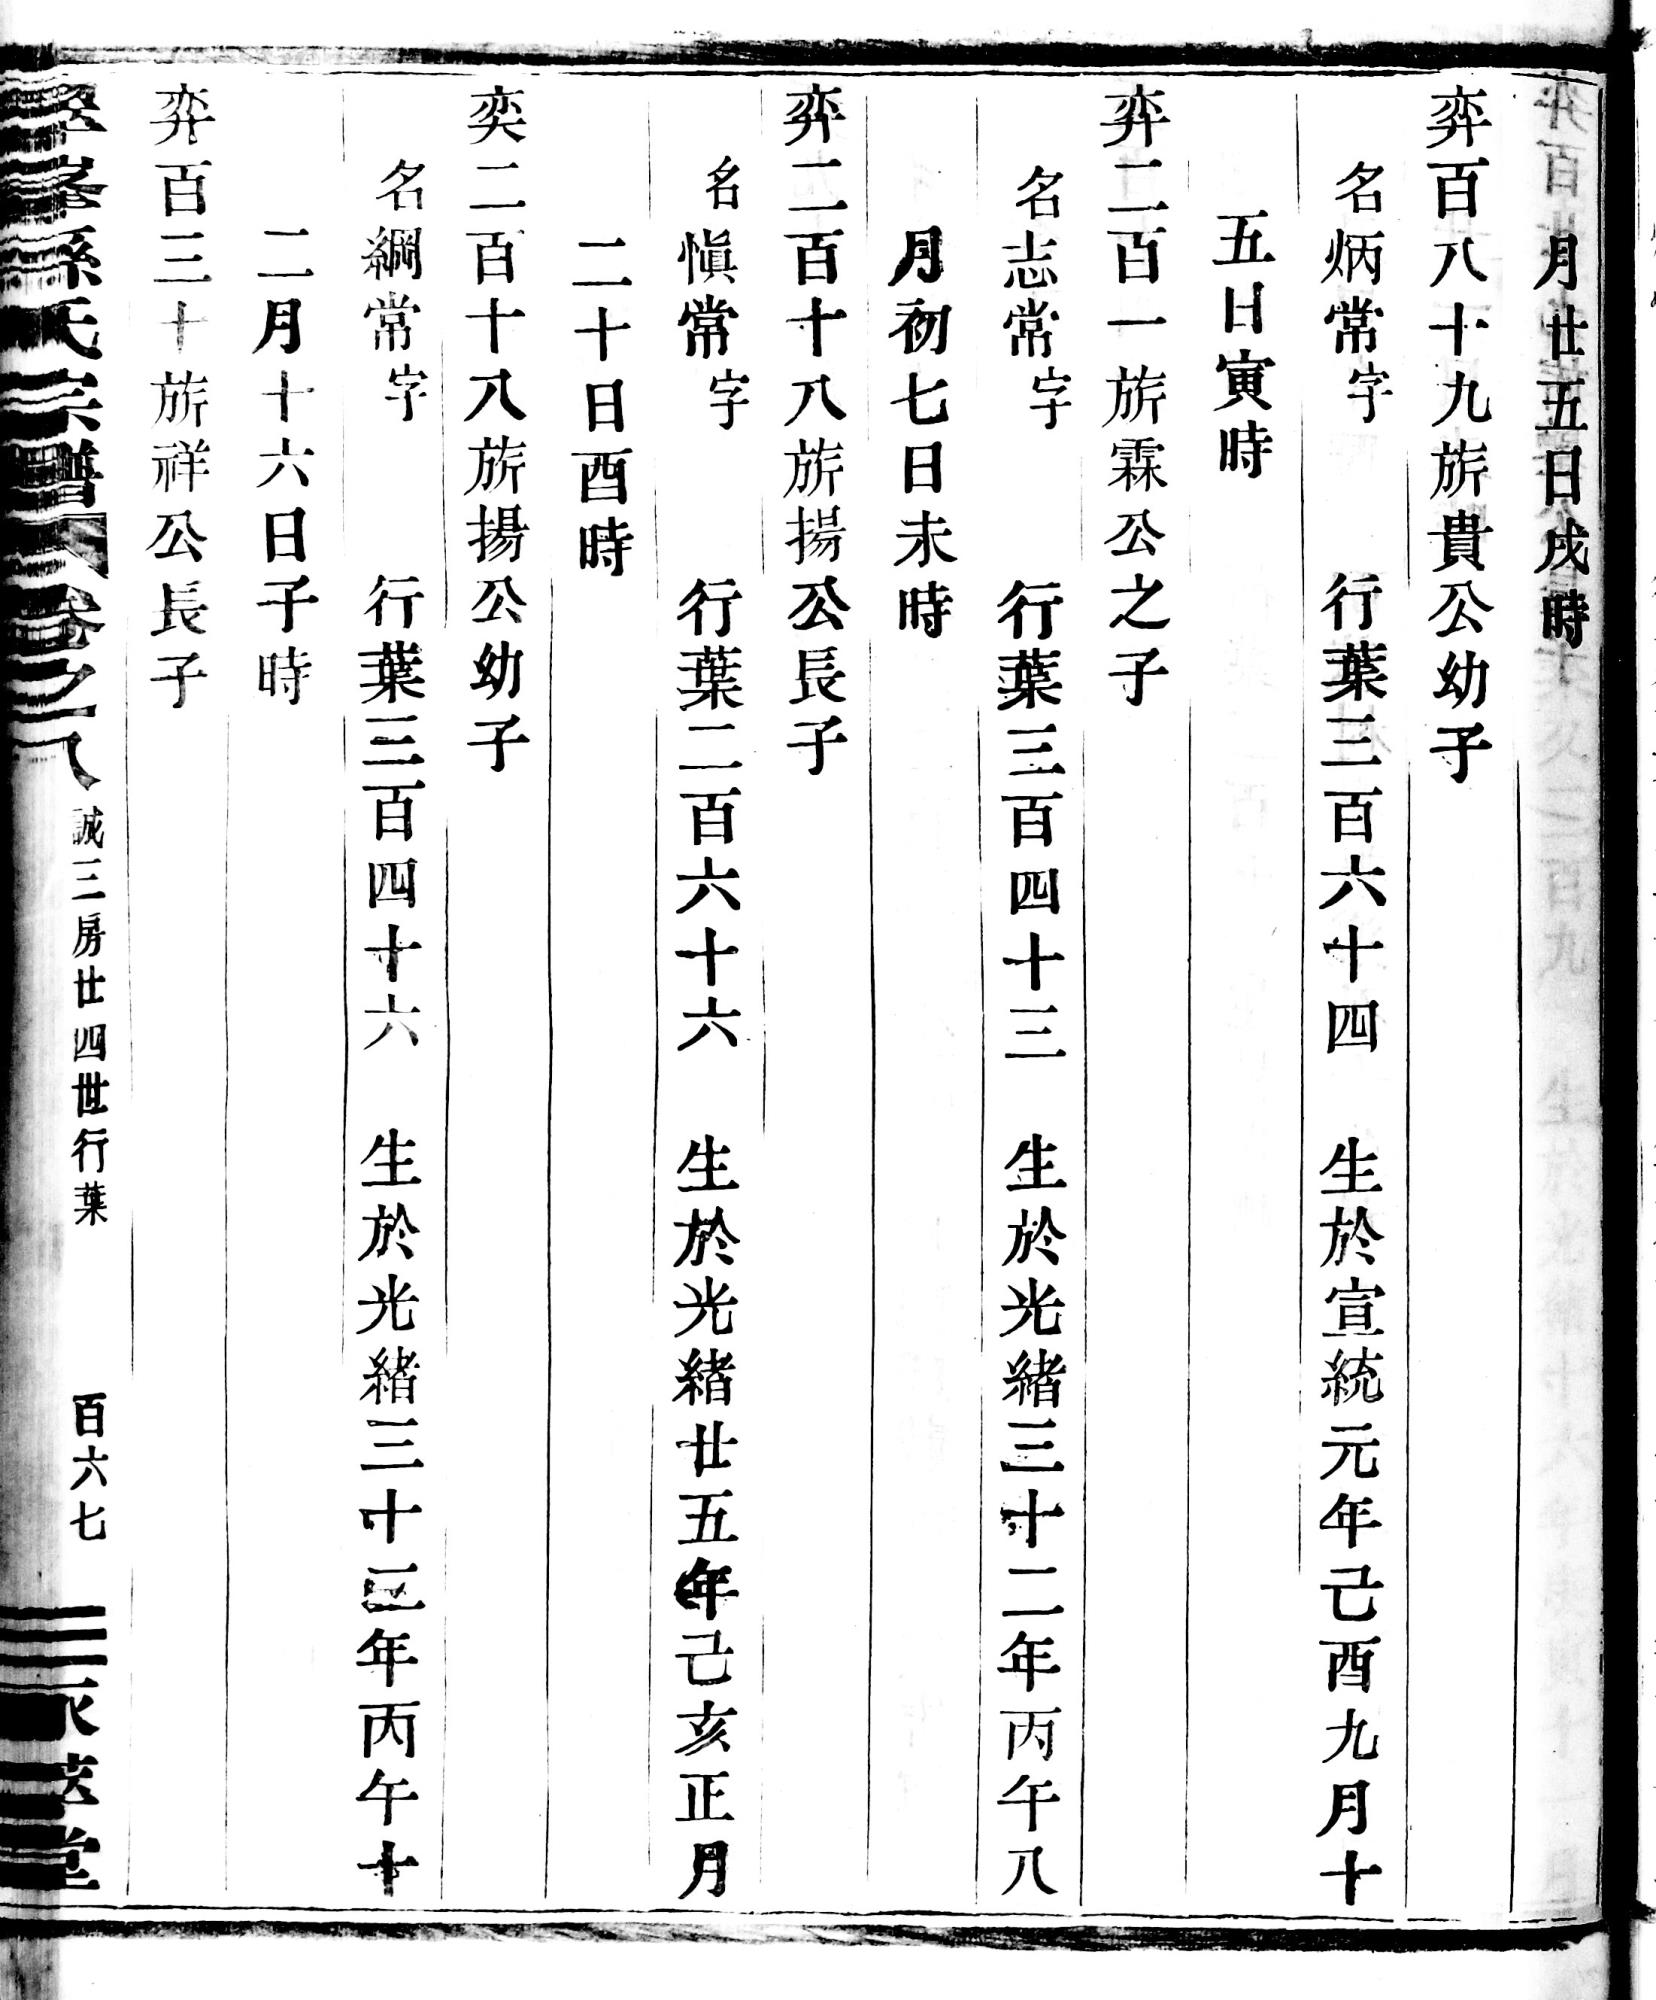 月廿五日戌時
弈百八十九旂貴公幼子
名炳常字 行葉三百六十四 生於宣統元年己酉九月十
五日寅時
弈二百一旂霖公之子
名志常字 行葉三百四十三 生於光緒三十二年丙午八
月初七日未時
弈二百十八旂揚公長子
名愼常字 行葉二百六十六 生於光緒廿五年己亥正月
二十日酉時
奕二百十八旂揚公幼子
名綱常字 行葉三百四十六 生於光緒三十三年丙午十
二月十六日子時
弈百三十旂祥公長子
孫氏宗譜 卷之八 誠三房廿四世行葉 百六七 堂